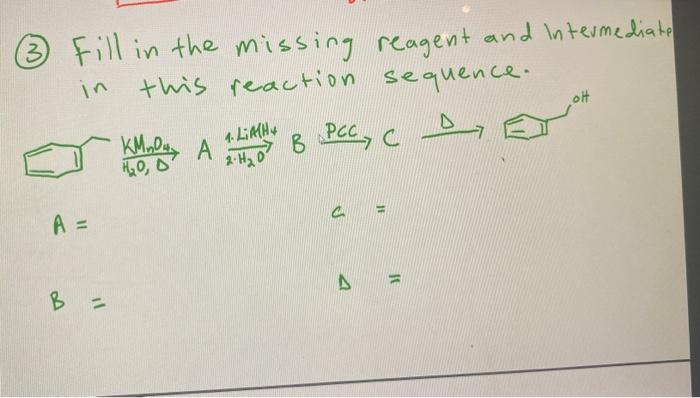 ③ Fill in the missing reagent and Intermediate
in this reaction sequence.
KMnO4, H2O, Δ A 1. LiAlH4 2. H2O B PCC C D OH
A =
C =
B =
D =